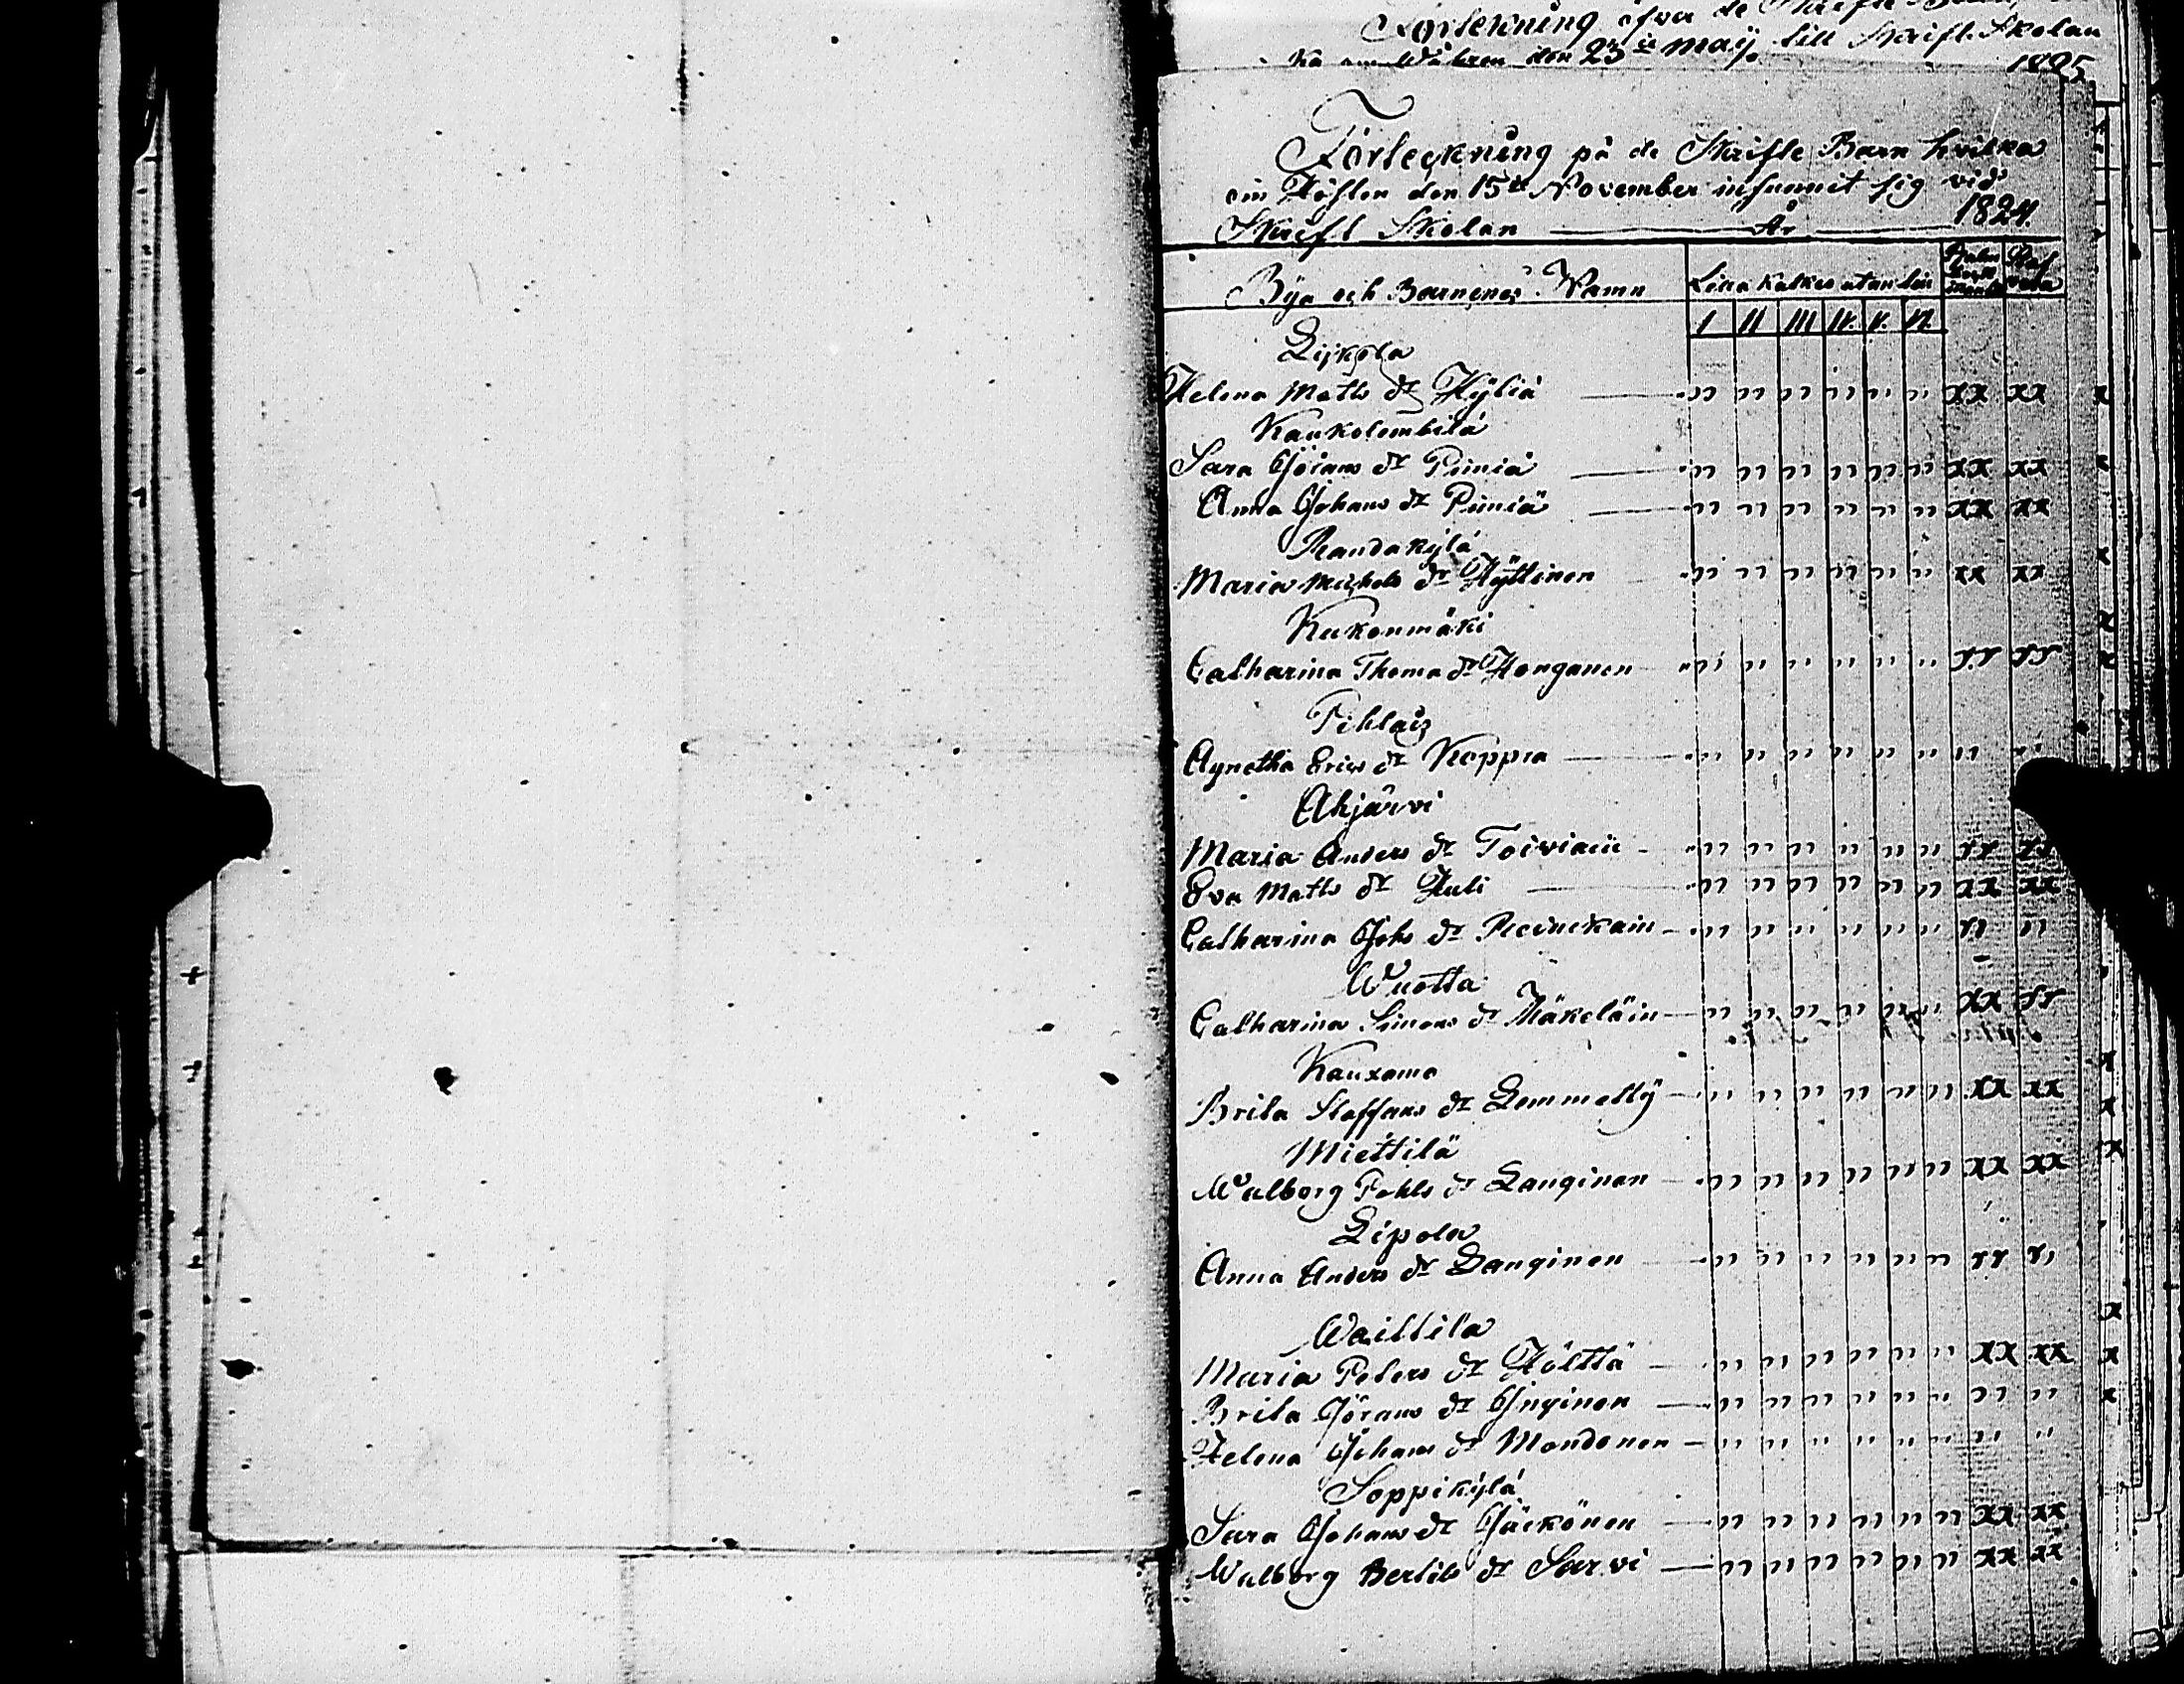 Förtekning öfver de Skrifte Barn
om Wåhren den 23 ie Maij till Skrift Skolan
1825
Förteckning på de Skrifte Barn hvilka
om Hösten den 15de November infunnit sig vid
Skrift Skolan År 1824.
Bya och Barnenes Namn
Lilla Katkes utan lui
Psalm Bok
I II III IV. V. VI.
Lijkola
Helena Matts dr Hyliä " " " " " " xx xx
Kaukolembilä
Sara Görans dr Piiniä " " " " " " xx xx
Anna Johans dr Piiniä " " " " " " xx xx
Randakylä
Maria Michels dr Hyttinen " " " " " " xx xx
Kukonmäki
Catharina Thoma dr Honganen " " " " " " rr rr
Pihlais
Agnetha Erics dr Koppra " " " " " " " "
Ahjärvi
Maria Anders dr Toiviain " " " " " " rr rr
Eva Matts dr Huli " " " " " " xx xx
Catharina Johs dr " " " " " " r" "
Wuotta
Catharina Simons dr Mäkeläin " " " " " " xx rr
Kauxama
Brita Staffans dr Lemmetty " " " " " " xx xx
Miettilä
Walborg Pohls dr Langinen " " " " " " xx xx
Lipola
Anna Anders dr Langinen " " " " " " rr r"
Waittila
Maria Peters dr Hölttä " " " " " " xx xx
Brita Görans dr Inginen " " " " " " " "
Helena Johans dr Mondonen " " " " " " " "
Soppikylä
Sara Johans dr Jäekönen " " " " " " xx xx
Walborg Bertils dr Sarvi " " " " " " xx xx